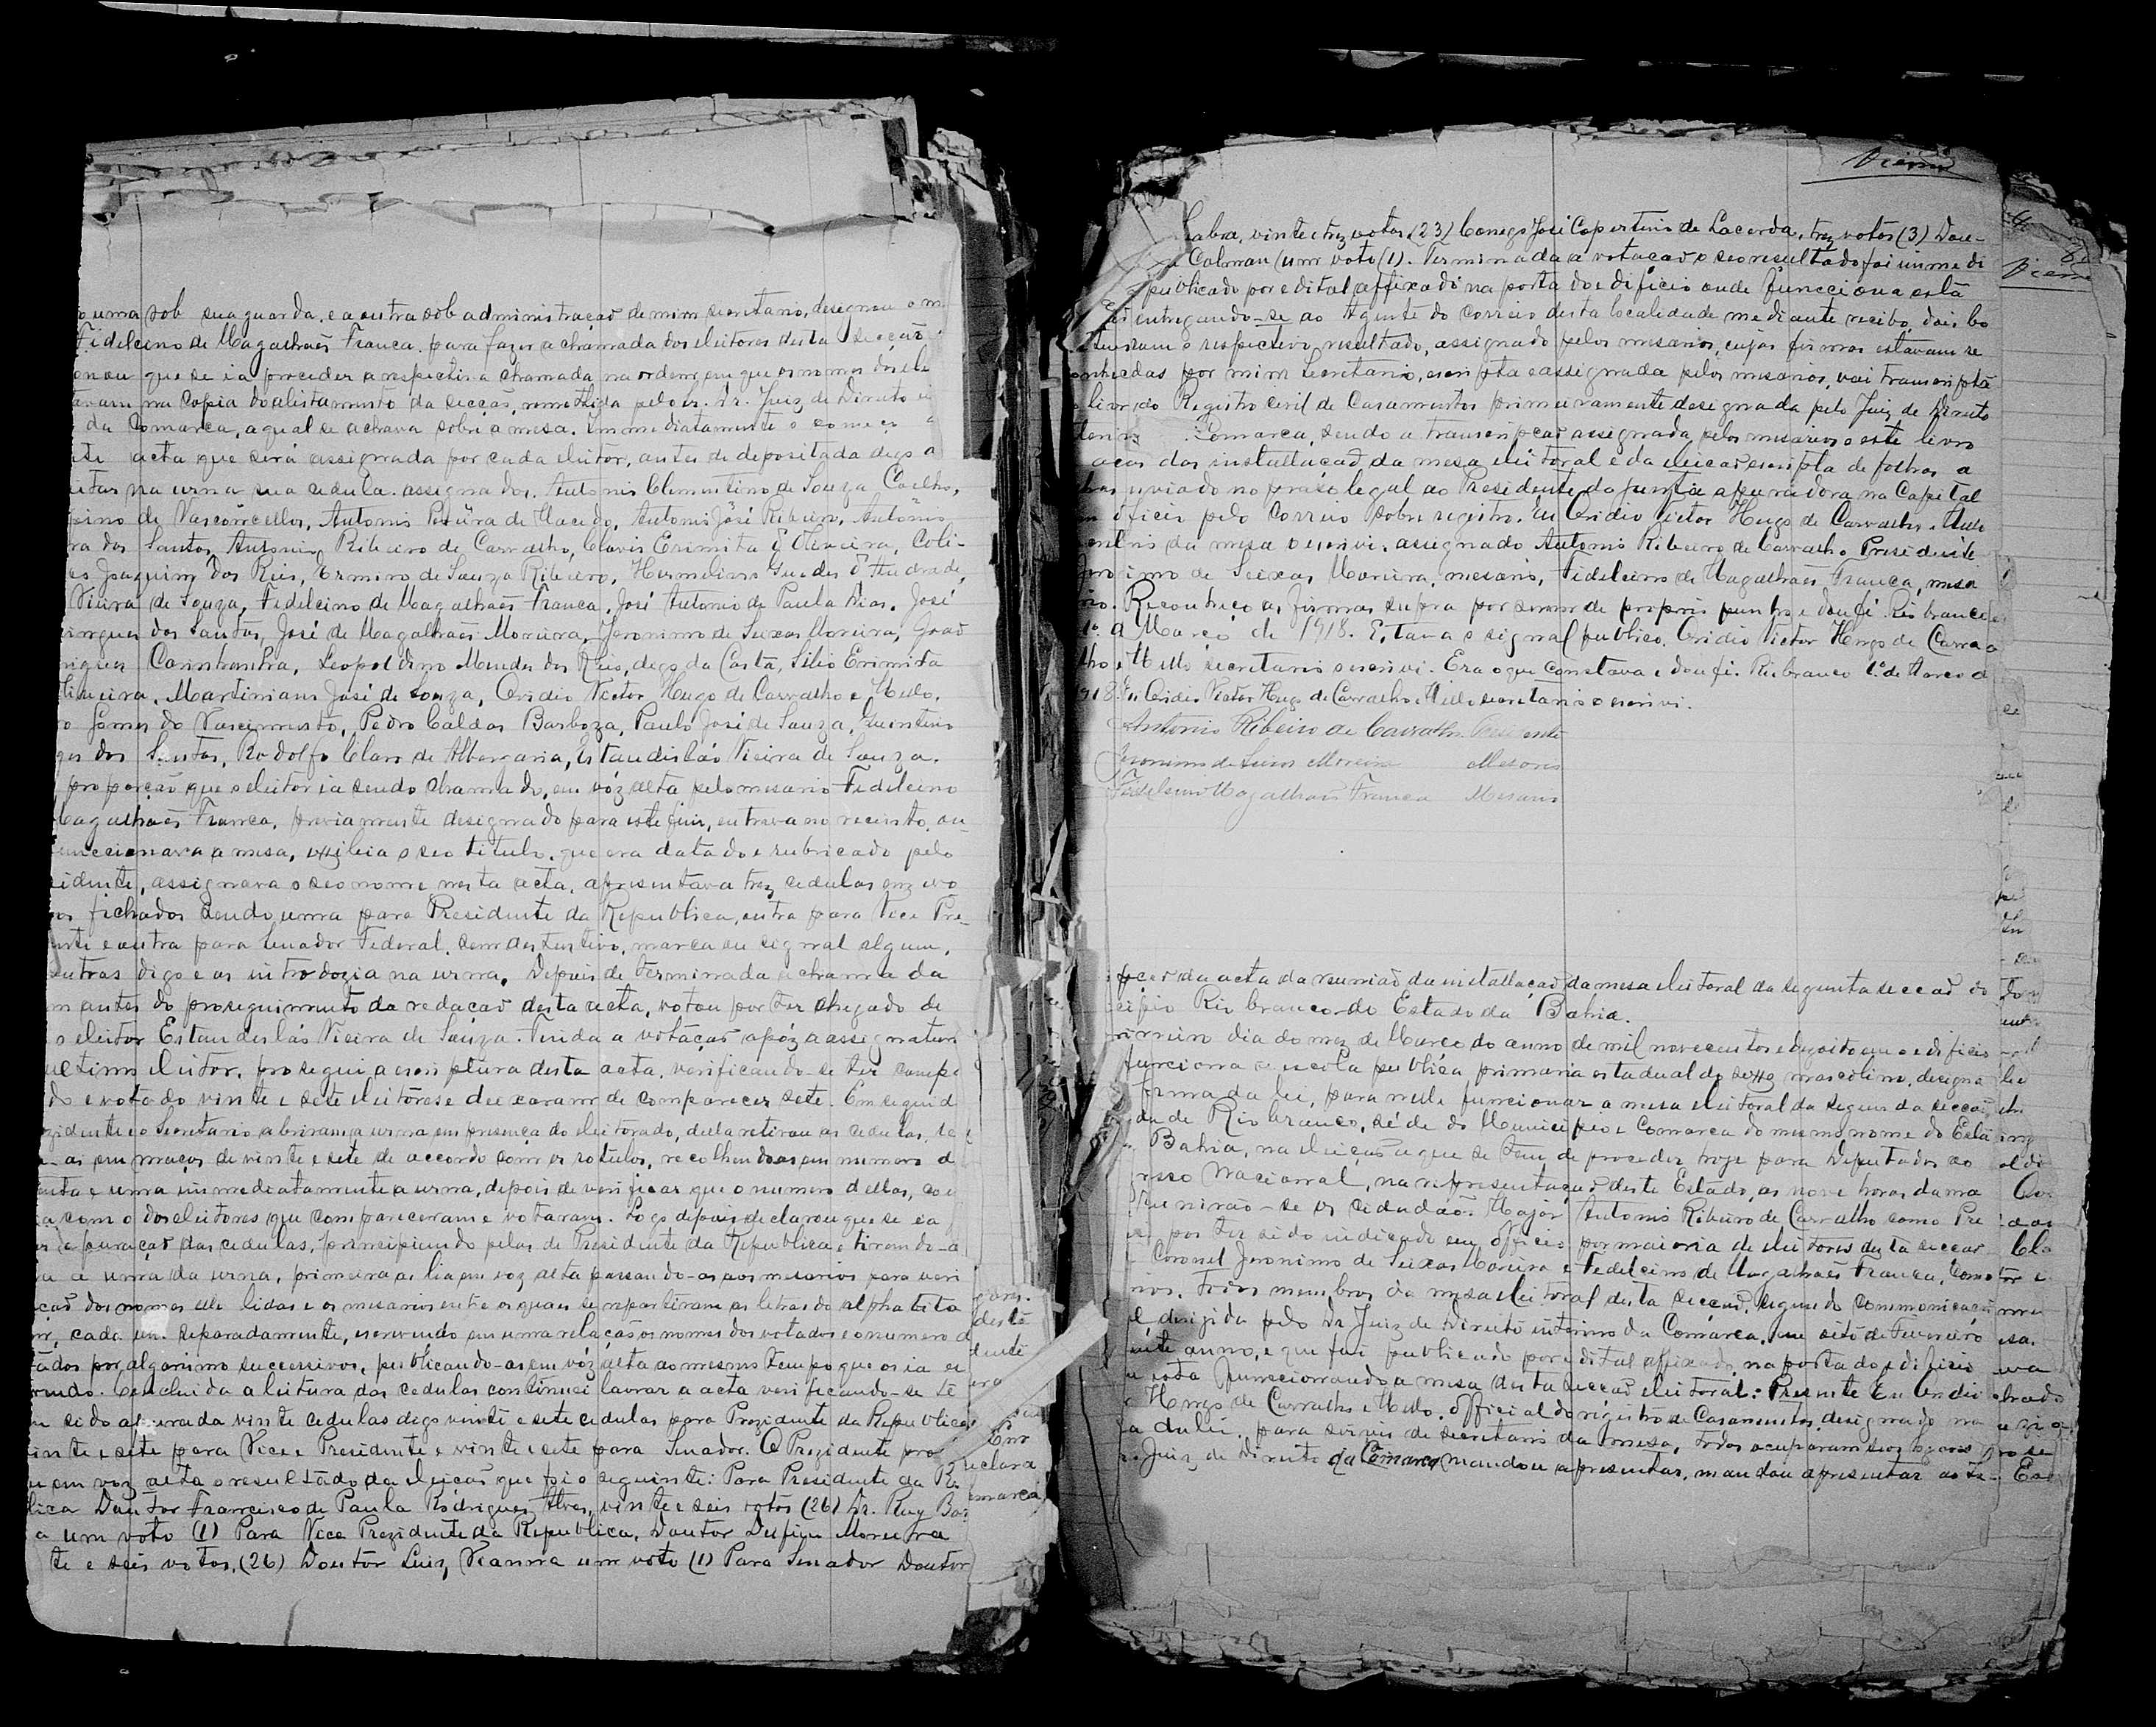 uma sob sua guarda, e a outra sob administração de mim secretario, designou o m
Fidelcino de Magalhães Franca, para fazer a chamada dos eleitores desta secção
que se ia proceder a respectiva chamada na ordem em que os nomes dos ele
na copia do alistamento da secção, remettida pelo Sr. Dr. Juiz de Direito
da Comarca, a qual se achava sobre a mesa. Immediatamente o começ
acta que será assignada por cada eleitor, antes de depositada digo a
na urna sua cedula. assignados. Antonio Clementino de Souza Coelho,
pino de Vasconcellos, Antonio Pereira de Macedo, Antonio José Ribeiro, Antonio
ra dos Santos, Antonio Ribeiro de Carvalho, Clovis Erimita d'Oliveira, Coli-
Joaquim dos Reis, Ermiro de Souza Ribeiro, Hermelino Guedes d'Andrade,
Vieira de Souza, Fidelcino de Magalhães Franca, José Antonio de Paula Dias, José
ingues dos Santos, José de Magalhães Moreira, Jeronimo de Seixas Moreira, João
rigues Leopoldino Mendes dos Reis, digo da Costa, Silio Erimita
liveira, Martiniano José de Souza, Ovidio Victor Hugo de Carvalho e Mello,
Gomes do Nascimento, Pedro Caldas Barboza, Paulo José de Souza, Quintino
ges dos Santos, Rodolfo Claro de Albergaria, Estandisláo Vieira de Souza.
proporção que o eleitor ia sendo chamado, em vóz alta pelo mesario Fidelcino
Magalhães Franca, previamente designado para este fim, entrava no recinto, on-
funccionava a mesa, exhibia o seo titulo, que era datado e rubricado pelo
sidente, assignava o seo nome nesta acta, apresentava trez cedulas em
fichados sendo uma para Presidente da Republica, outra para Vece Pre-
nte e outra para Senador Federal sem destintivo, marca ou signal algum,
outras digo e as introdozia na urna. Depois de terminada a chamada
antes do proseguimento da redação desta acta, votou por ter chegado de
o eleitor Estandeslás Vieira de Souza. Finda a votação apóz a assignatura
ultimo eleitor, prosegui a escriptura desta acta, verificando-se ter compe
do e votado vinte e sete eleitores e deixaram de comparecer sete. Em seguid
zidente e o Secretario abriram a urna em presença do eleitorado, della retirou as cedulas, se
as em maços de vinte e sete de accordo com os rotulos, recolhendo as em numero d
enta e uma immediatamente a urna, depois de verificar que o numero dellas, co
com o dos eleitores que compareceram e votaram. Logo depois declarou que se ia
apuração das cedulas, principiando pelas de Presidente da Republica e tirando-a
a uma da urna, primeira as lia em voz alta passando-as aos mesarios para veri
cação dos nomes elle lidas e os mesarios entre os quaes se repartiram as letras do alphabeto
cada um separadamente, escrevendo em uma relação os nomes dos votados e o numero d
tados por algarismo successivos, publicando-as em vóz alta ao mesmo tempo que os ia es
vendo. Concluida a leitura das cedulas continuei lavrar a acta verificando-se te
sido apurada vinte cedulas digo vinte e sete cedulas para Prezidente da Republica
inte e sete para Vice e Presidente e vinte e sete para Senador. O Prezidente pro
em voz alta o resultado da eleição que foi o seguinte: Para Presidente da Re
lica Doutor Francisco de Paula Rodrigues Alves, vinte e seis votos (26) Dr. Ruy Bar
a um voto (1) Para Vece Prezidente da Republica, Doutor Delfim Moreira
te e seis votos, (26) Doutor Luiz Vianna um voto (1) Para Senador Doutor
Seabra, vinte e trez votos (23) Conego José Copertino de Lacerda, trez votos (3) Dou-
Calmon (um voto (1). Terminada a votação o seo resultado foi imme di
publicado por edital affixado na porta do edificio onde funcciona esta
entregando-se ao Agente do Correio desta localidade mediante recibo, dois bo
o respectivo resultado, assignado pelos mesarios, cujas firmas estavam re
onhecidas por mim Secretario, escripta e assignada pelos mesarios, vai transcripta
livro do Registro Civil de Casamentos primeiramente designada pelo Juiz de Direito
Comarca, sendo a transcripção assignada pelos mesarios e este livro
das installação da mesa eleitoral e da eleição escripta de folhas a
enviado no praso legal ao Presidente da Junta apuradora na Capital
officio pelo Correio sobre registro. Eu Ovidio Victor Hugo de Carvalho e Mello
da mesa o escrivi. assignado Antonio Ribeiro de Carvalho Presidente
Jeronimo de Seixas Moreira, mesario, Fidelcino de Magalhães Franca, mesa
rio. Reconheço as firmas supra por serem de proprio punho e dou fé. Rio branco
1º d Março de 1918. Estava o signal publico. Ovidio Victor Hugo de Carva
lho e Mello secretario o escrivi. Era o que constava e dou fé. Rio branco 1º de Março d
1918. Eu Ovidio Victor Hugo de Carvalho e Mello secretario o escrivi.
Antonio Ribeiro de Carvalho Presidente
Jeronimo de Seixas Moreira Mesario
Fidelcino Magalhães Franca Mesario
pção da acta da reunião da installação da mesa eleitoral da segunta secção do
cipio Rio branco do Estado da Bahia.
rimeiro dia do mez de Março do anno de mil novecentos e dezoito em o edificio
funcciona a escola publica primaria estadual do sexo mascolino, designa
forma da lei, para nelle funcionar a mesa eleitoral da segunda secção
dade de Rio branco, séde do Municipio e Comarca do mesmo nome do Esta
Bahia, na eleição a que se tem de proceder hoje para Deputados ao
resso Nacional, na representação deste Estado, as nove horas da ma
reunirão-se os cidadãos: Major Antonio Ribeiro de Carvalho como Pre
por ter sido indicado em officio por maioria de eleitores desta secção
Coronel Jeronimo de Seixas Moreira e Fedelcino de Magalhães Franca, como
rios. Todos membros da mesa eleitoral desta secção, segundo communicação
dirijida pelo Dr Juiz de Direito interino da Comarca, em sete de Fevereiro
este anno, e que foi publicado por edital affixado na porta do edificio
esta funccionando a mesa desta secção eleitoral: Presente Eu Ovidio
Hugo de Carvalho e Mello, Official do registro de Casamentos, designado na
da lei, para servir de secretario da mesa, todos ocuparam seos logares
Juiz de Direito da Comarca mandou apresentar, mandou apresentar